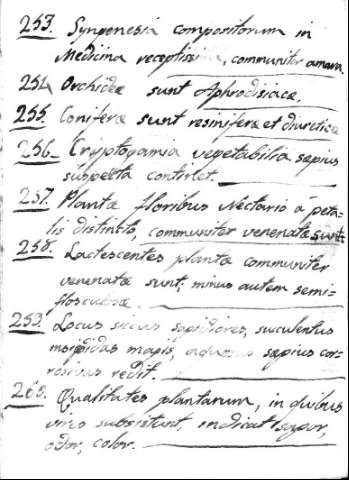 253. Syngenesia compositorum in
Medicina receptissima, communiter amara.
254. Orchideæ sunt Aphrodisiacæ.
255. Coniferæ sunt resiniferæ et diureticæ
256. Cryptogamia vegetabilia sæpius
suspecta continet.
257. Plantæ floribus Nectario á peta-
lis distincto, communiter venenatæ sunt.
258. Lactescentes plantæ communiter
venenatæ sunt, minus autem semi-
flosculosæ.
259. Locus siccus sapidiores, succulentus
insipidas magis, aquosus sæpius cor-
rosivas redit.
260. Qualitates plantarum, in quibus
vires subsistunt, indicat sapor,
odor, color.